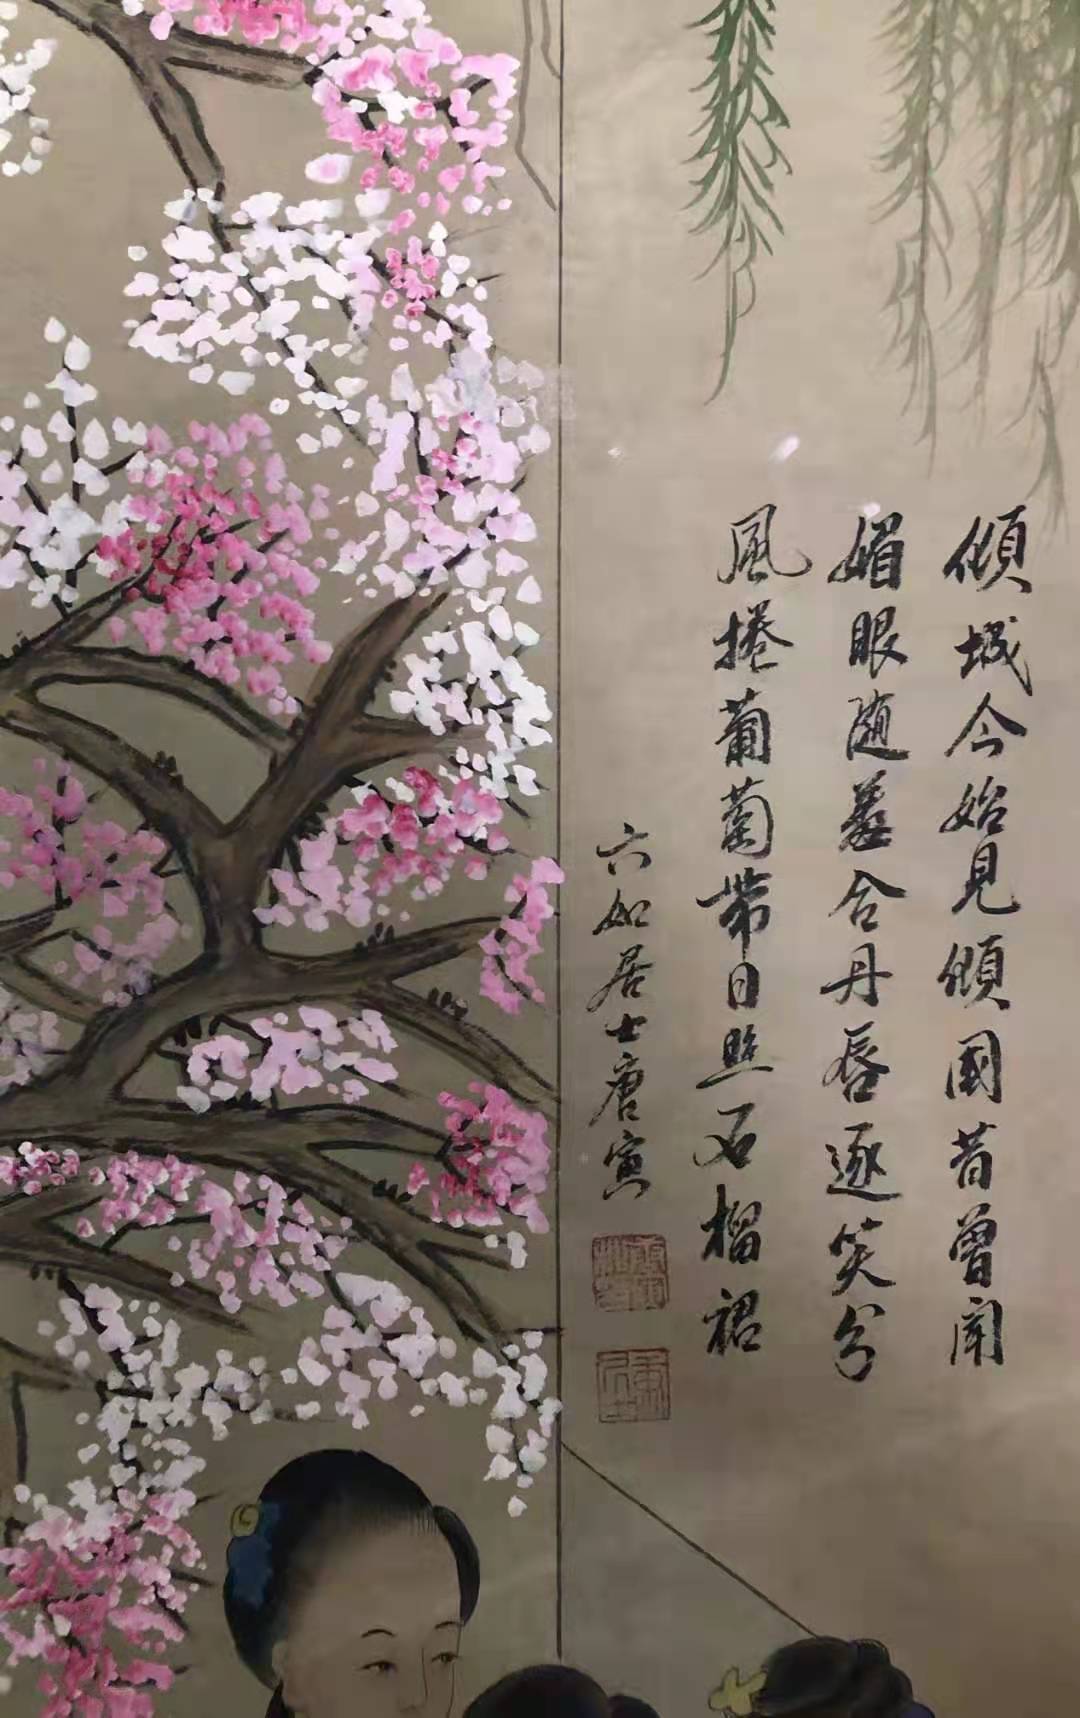 傾城今始見傾國昔曾聞
媚眼随羞合丹唇逐笑分
風捲葡萄帯日照石榴裙
六如居士唐寅